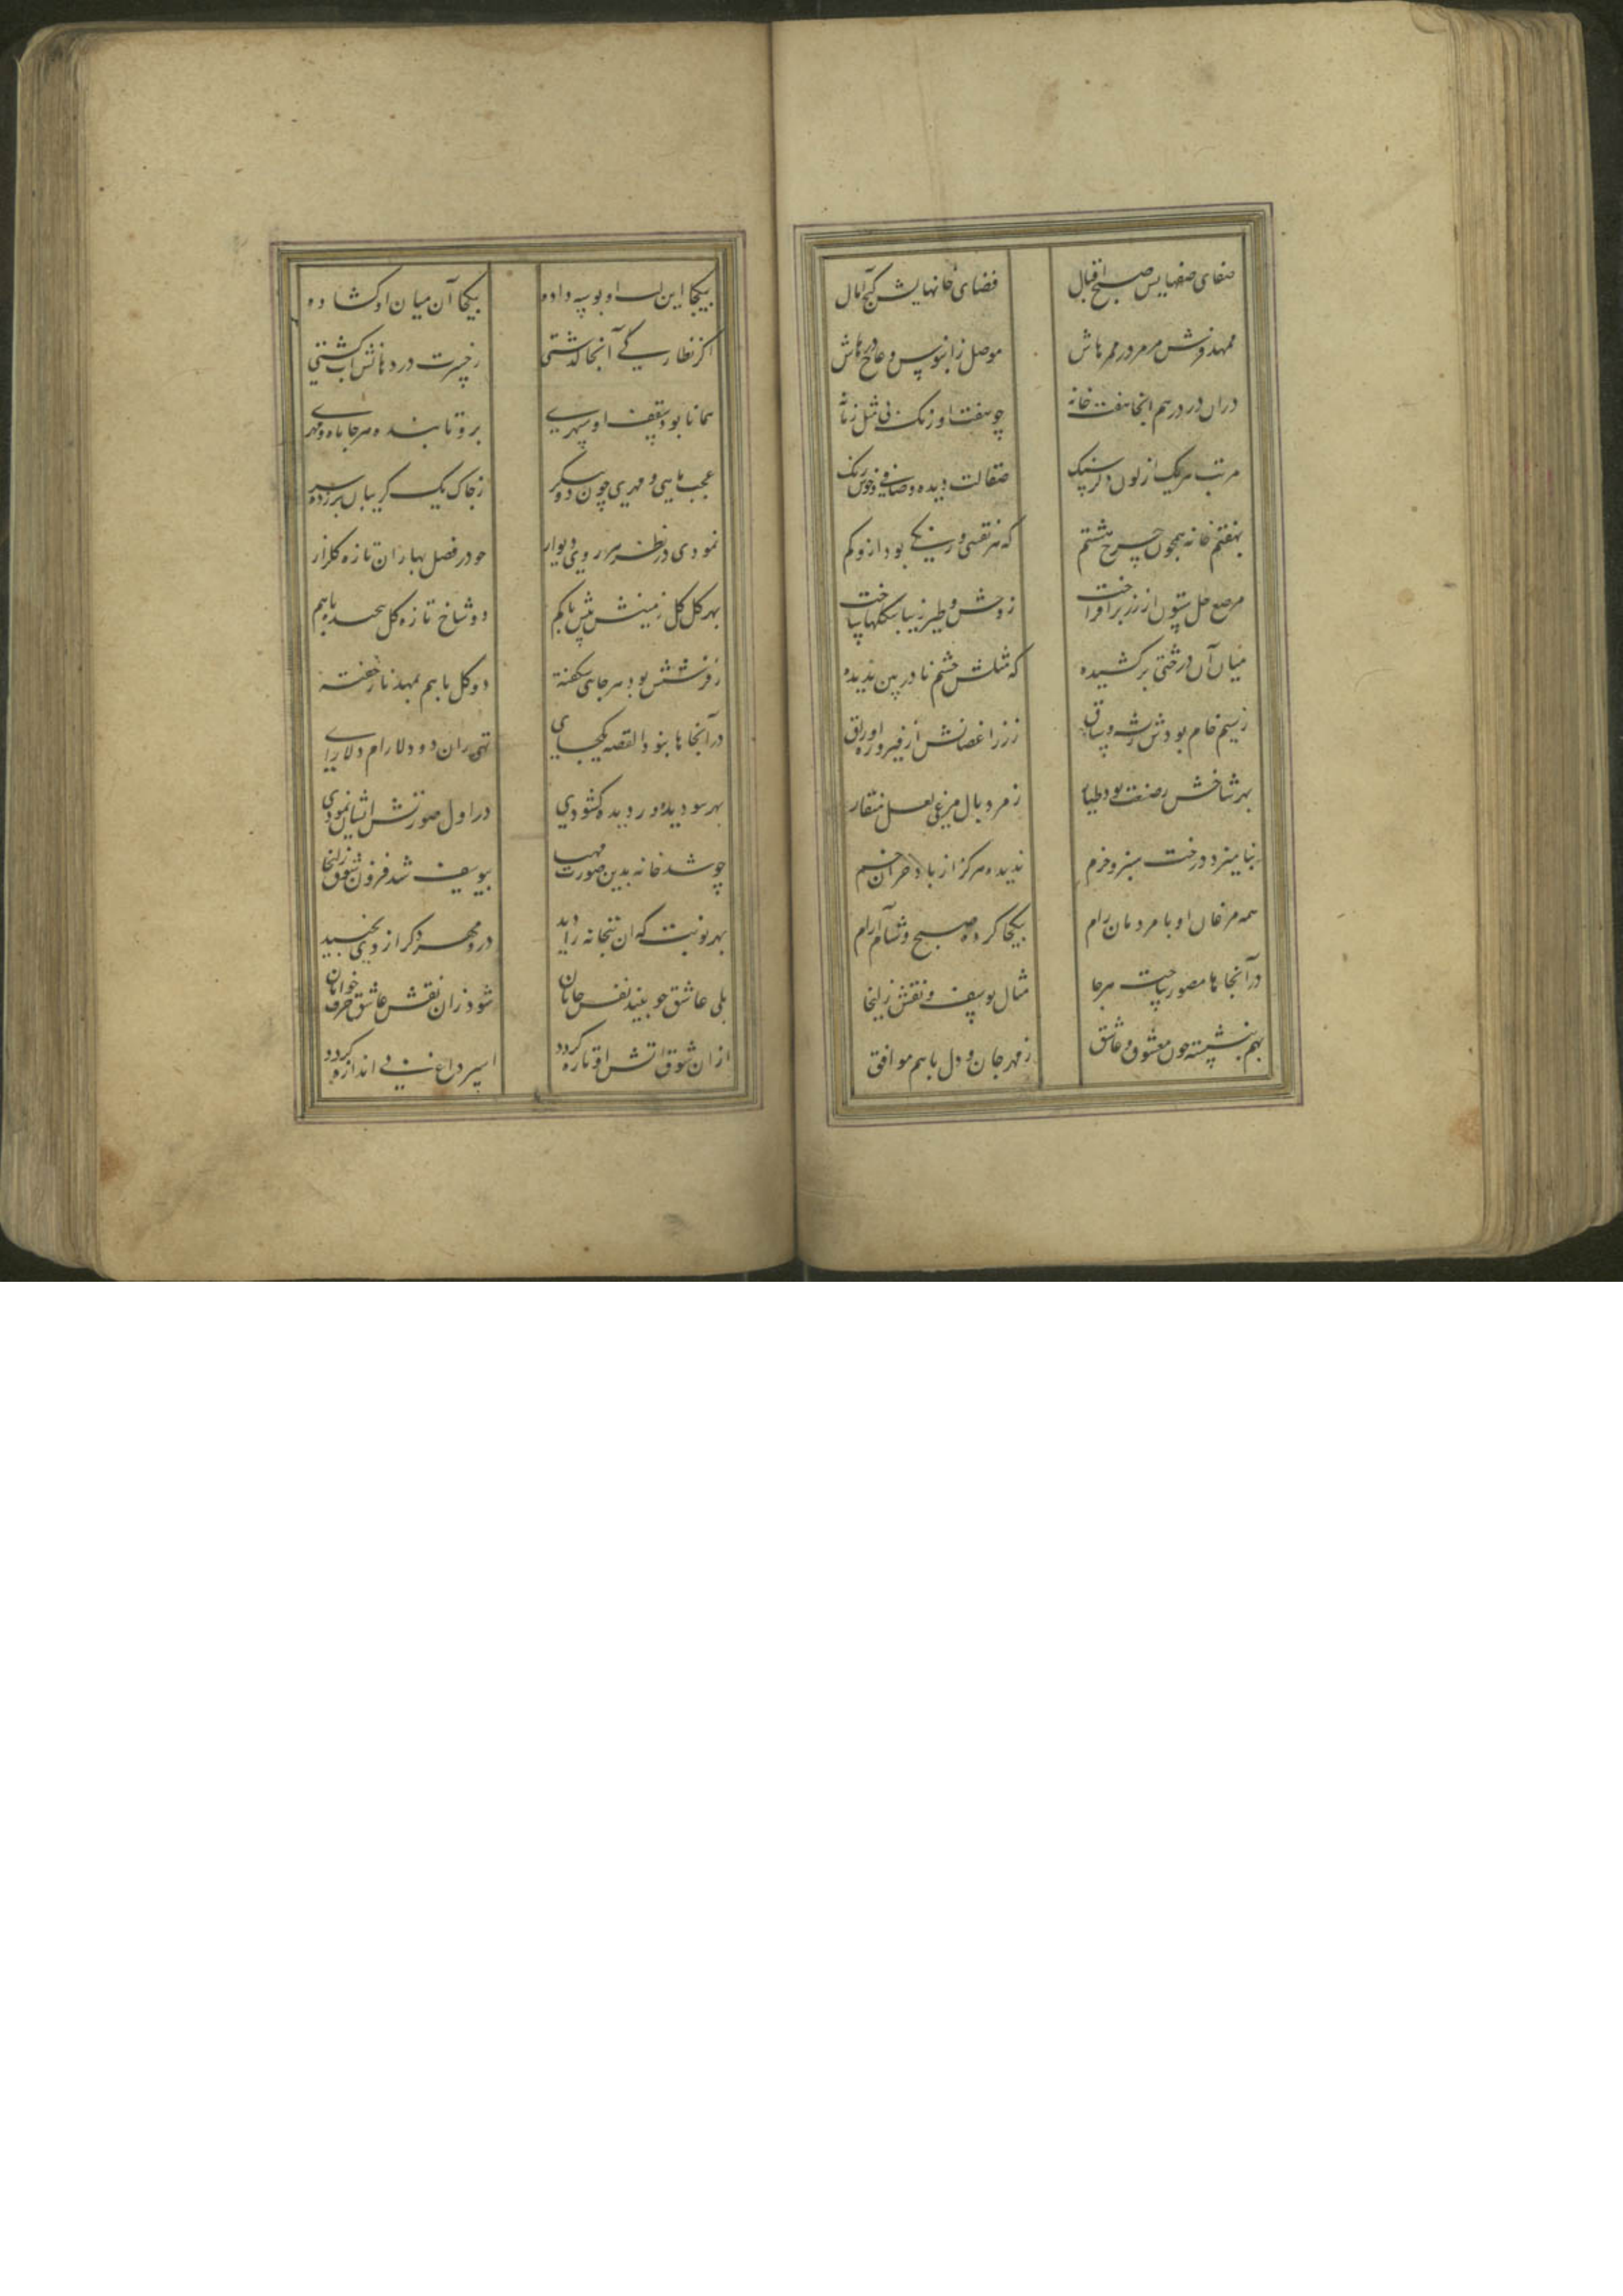 صفای صفهایش صبح اقبال
فضای خانهایش کنج آمال
ممهد فرش مرمر در ممرهاش
موصل ز ابنوس و عاج درهاش
دران در درهم انجا هفت خانه
چو هفت اورنک بی مثل زمانه
مرتب هر یک از لون دکر سنک
صقالت دیده و صافی و خوش رنک
بهفتم خانه همچون چرخ هشتم
که هر نقشی و رنکی بود ازو کم
مرصع چل ستون از زر برافراخت
ز وحش و طیر زیبا شکلها ساخت
میان آن درختی بر کشیده
که مثلش چشم نادر بین ندیده
ز سیم خام بودش رشه و ساق
ز زر اغصانش از فیروزه اوراق
بهر شاخش ز صنعت بود طیار
زمرد بال مرغی لعل منقار
بنامیزد درخت سبز و خرم
ندیده هرکز از باد خزان خم
همه مرغان او با مردمان رام
بیکجا کرده صبح و شام آرام
در آنجاها مصور ساخت هرجا
مثال یوسف و نقش زلیخا
بهم بنشسته چون معشوق و عاشق
ز مهر جان و دل باهم موافق
بیکجا این لب او بوسه داده
بیکجا آن میان او کشاده
اکر نظارکی آنجا کذشتی
ز حسرت در دهانش اب کشتی
همانا بود سقف او سپهری
برو تابنده هرجا ماه و مهری
عجب ماهی و مهری چون دو پیکر
ز چاک یک کریبان بر زده سر
نمودی در نظر هر روی دیوار
چو در فصل بهاران تازه کلزار
بهر کل کل زمینش بیش یا کم
دو شاخ تازه کل پیچیده باهم
ز فرشش بود هر جایی شکفته
دو کل باهم بمهد ناز خفته
در آنجاها نبود القصه یکجای
تهی زان دو دلارام دلارای
بهر سو دیده ور دیده کشودی
در اول صورتش ایشان نمودی
چو شد خانه بدین صورت مهیا
بیوسف شد فزون شوق زلیخا
بهر نوبت که ان بتخانه را دید
درو مهر دکر از وی بجنبید
بلی عاشق چو بیند نقش جانان
شود زان نقش عاشق حرف خوانان
ازان شوق اتش او تازه کردد
اسیر داغ بی اندازه کردد